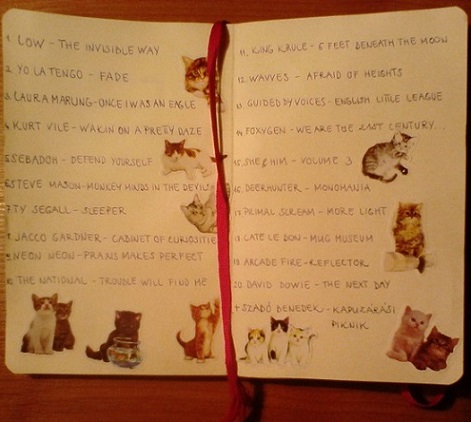 1. LOW - THE INVISIBLE WAY
2. YO LA TENGO - FADE
3. LAURA MARLING - ONCE I WAS AN EAGLE
4. KURT VILE - WAKIN ON A PRETTY DAZE
5. SEBADOH - DEFEND YOURSELF
6. STEVE MASON - MONKEY MINDS IN THE DEVIL'S
7. TY SEGALL - SLEEPER
8. JACCO GARDNER - CABINET OF CURIOSITIES
9. NEON NEON - PRAXIS MAKES PERFECT
10. THE NATIONAL - TROUBLE WILL FIND ME
11. KING KRULE - 6 FEET BENEATH THE MOON
12. WAVVES - AFRAID OF HEIGHTS
13. GUIDED BY VOICES - ENGLISH LITTLE LEAGUE
14. FOXYGEN - WE ARE THE 21ST CENTURY...
15. SHE & HIM - VOLUME 3
16. DEERHUNTER - MONOMANIA
17. PRIMAL SCREAM - MORE LIGHT
18. CATE LE BON - MUG MUSEUM
19. ARCADE FIRE - REFLEKTOR
20. DAVID BOWIE - THE NEXT DAY
+ SZABÓ BENEDEK - KAPUZÁRÁSI
PIKNIK